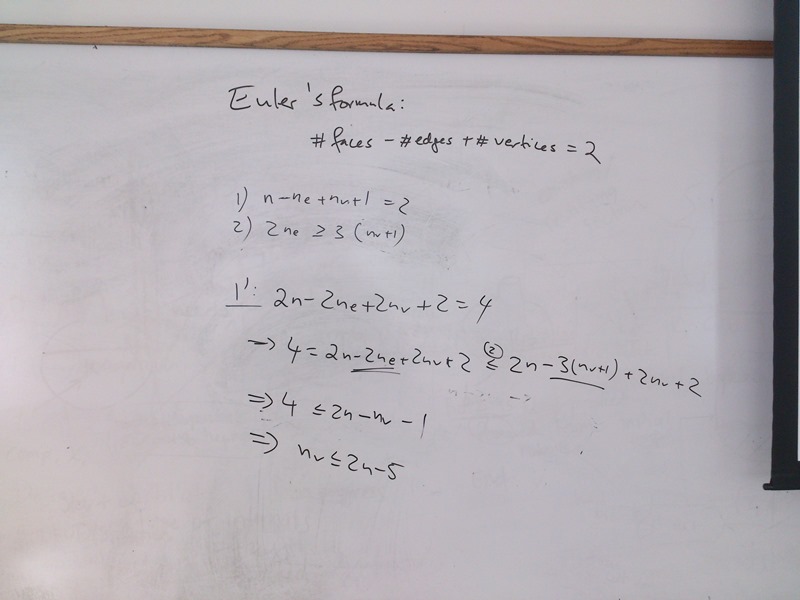 Euler's formula:
# faces - # edges + # vertices = 2
1) n - nₑ + nᵥ + 1 = 2
2) 2nₑ ≥ 3 (nᵥ+1)
1': 2n - 2nₑ + 2nᵥ + 2 = 4
→ 4 = 2n - 2nₑ + 2nᵥ + 2 ≤ (2) 2n - 3(nᵥ+1) + 2nᵥ + 2
⇒ 4 ≤ 2n - nᵥ - 1
⇒ nᵥ ≤ 2n - 5